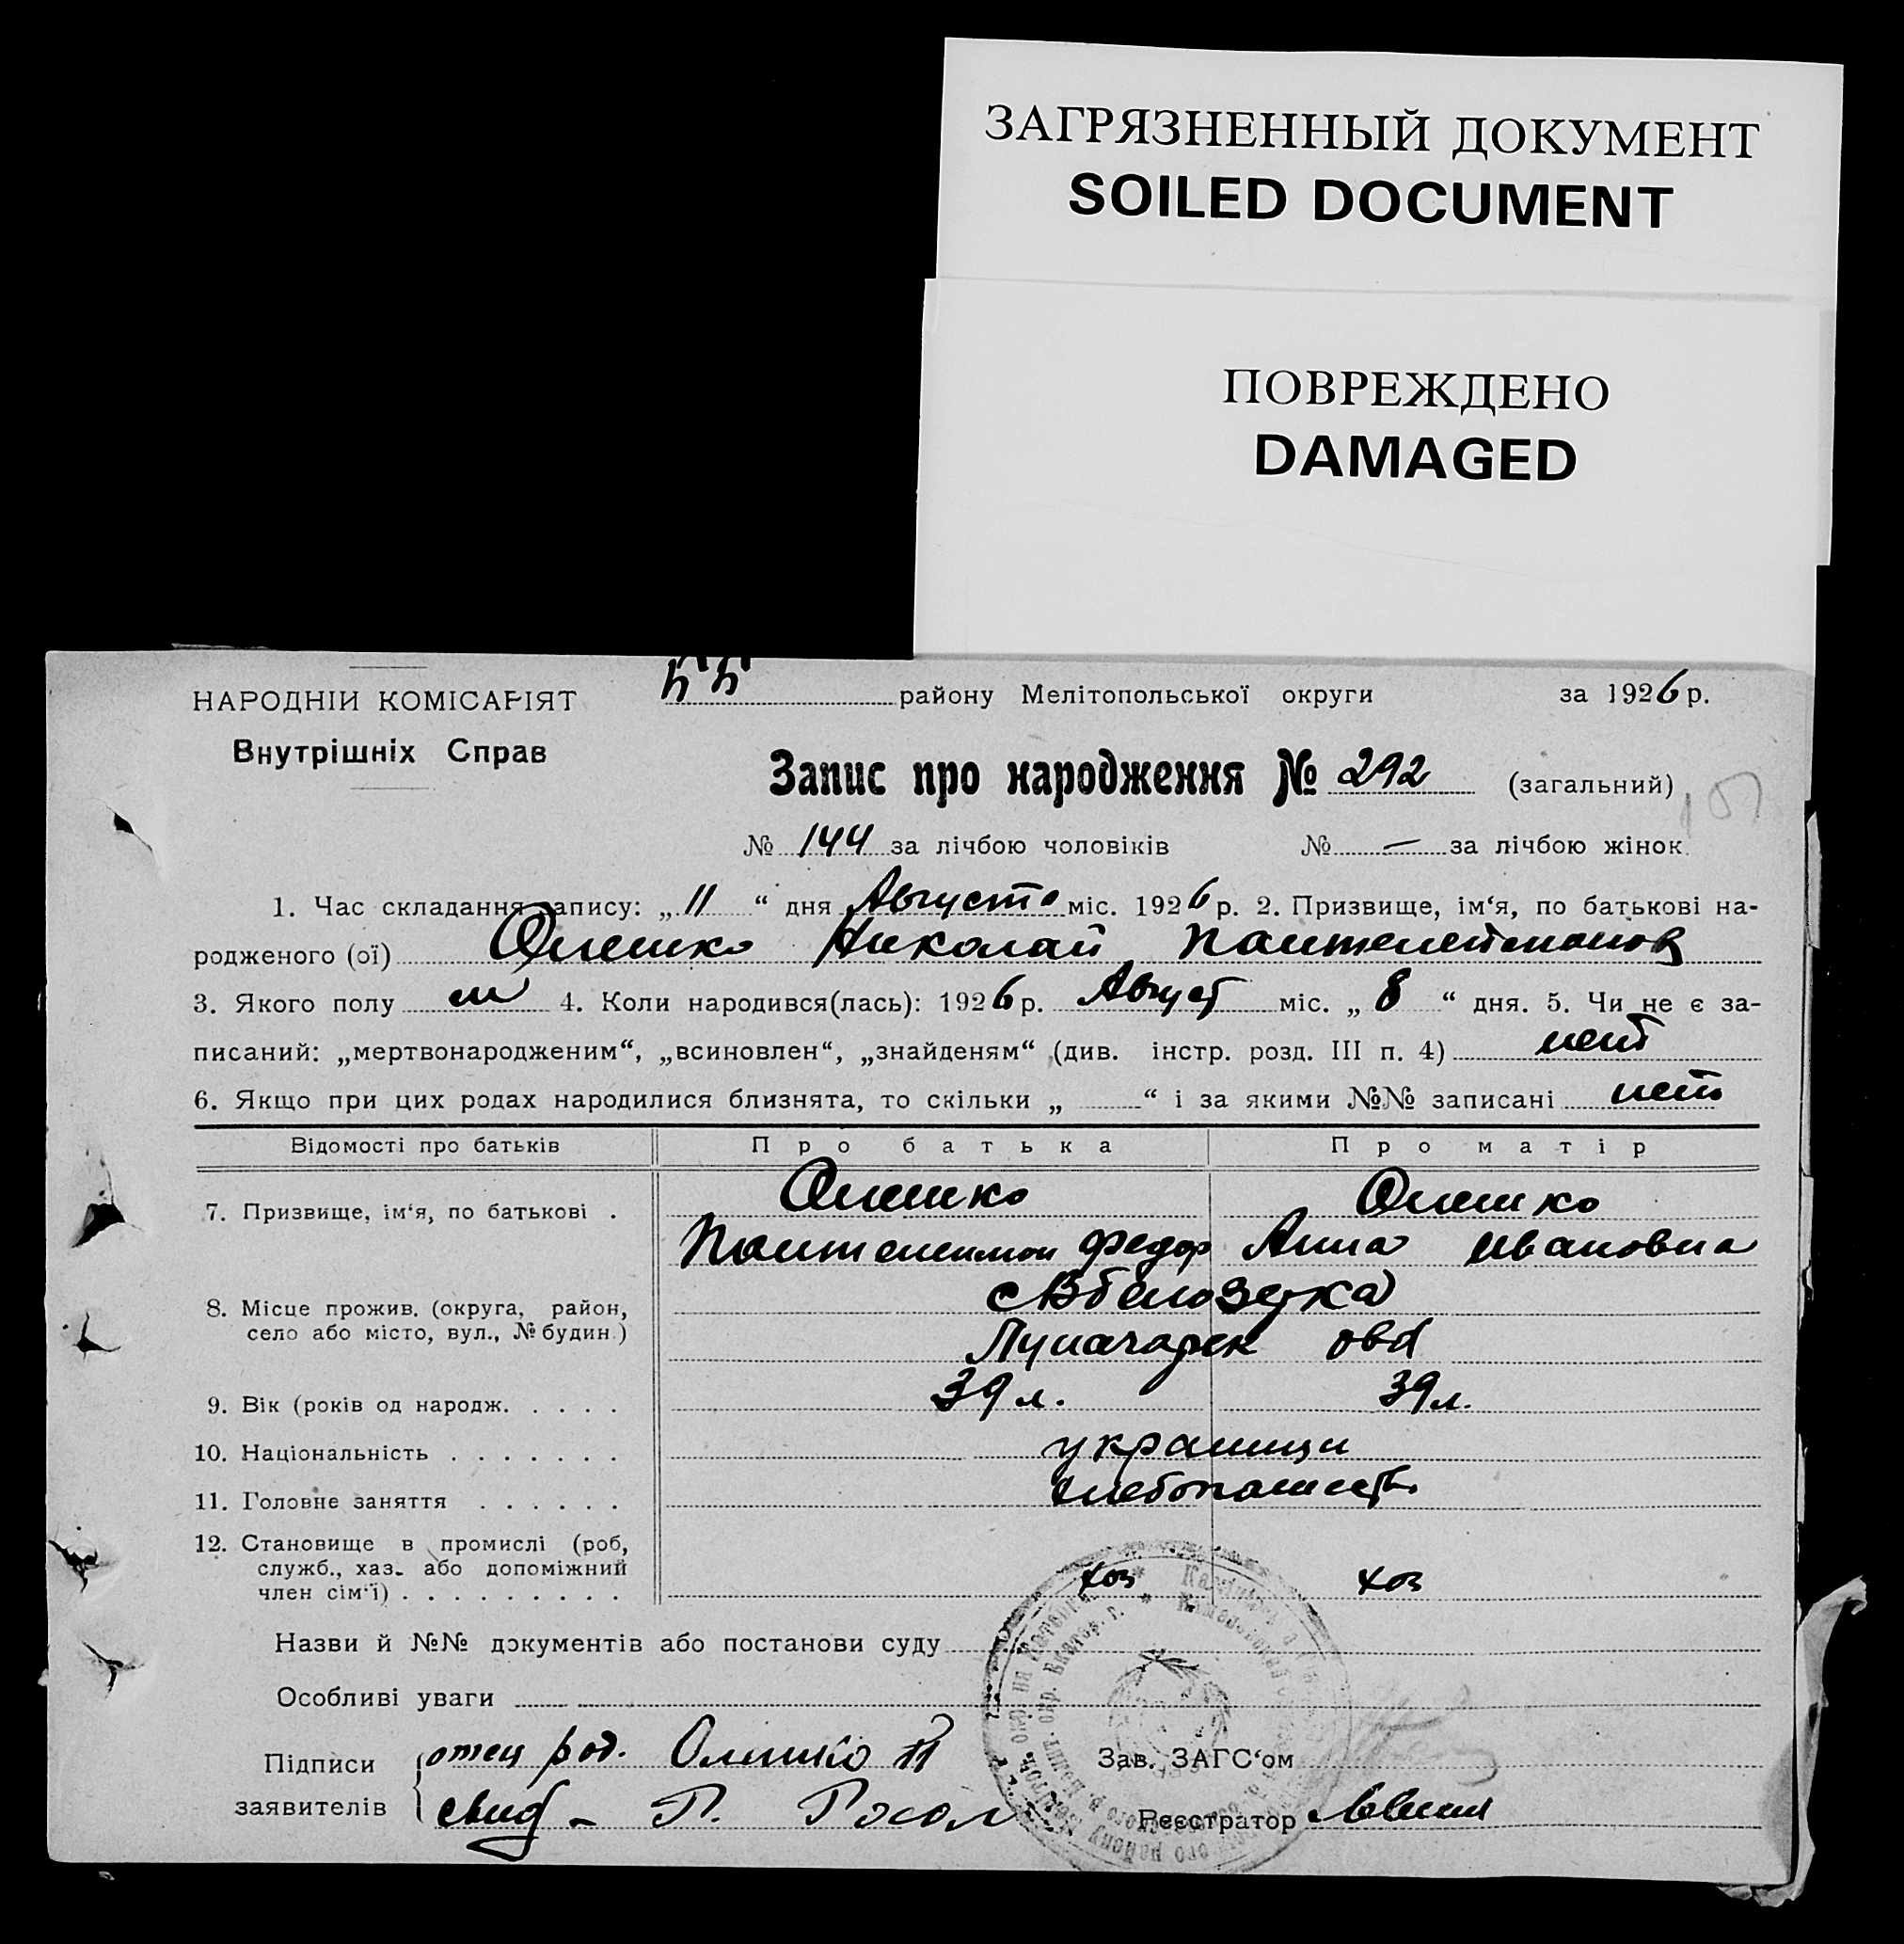 ЗАГРЯЗНЕННЫЙ ДОКУМЕНТ
SOILED DOCUMENT
ПОВРЕЖДЕНО
DAMAGED
НАРОДНІЙ КОМІСАРІЯТ
Внутрішніх Справ
району Мелітопольської округи за 1926 р.
Запис про народження № 292 (загальний)
№ 144 за лічбою чоловіків № — за лічбою жінок.
1. Час складання запису: „ 11 “ дня Августа міс. 1926 р. 2. Призвище, ім‘я, по батькові на-
родженого (ої) Олешко Николай Пантелеймонов
3. Якого полу м 4. Коли народився(лась): 1926 р. Август міс. „ 8 “ дня. 5. Чи не є за-
писаний: „мертвонародженим“, „всиновлен“, „знайденям“ (див. інстр. розд. III п. 4) нет
6. Якщо при цих родах народилися близнята, то скільки „ “ і за якими №№ записані нет
Відомості про батьків Про батька Про матір
7. Призвище, ім‘я, по батькові . Олешко Олешко
Пантелеимон Федор Анна Ивановна
8. Місце прожив. (округа, район, белозерка
село або місто, вул., № будин.)
Луначарск
9. Вік (років од народж. . . . . 39 л. 39 л.
10. Національність . . . . . . . украинци
11. Головне заняття . . . . . . хлебопашест
12. Становище в промислі (роб,
служб., хаз. або допоміжний
член сім‘ї) . . . . . . . . . хоз хоз
Назви й №№ документів або постанови суду
Особливі уваги
Підписи отец род. Олешко П Зав. ЗАГС‘ом
заявителів свид - Г. Реєстратор